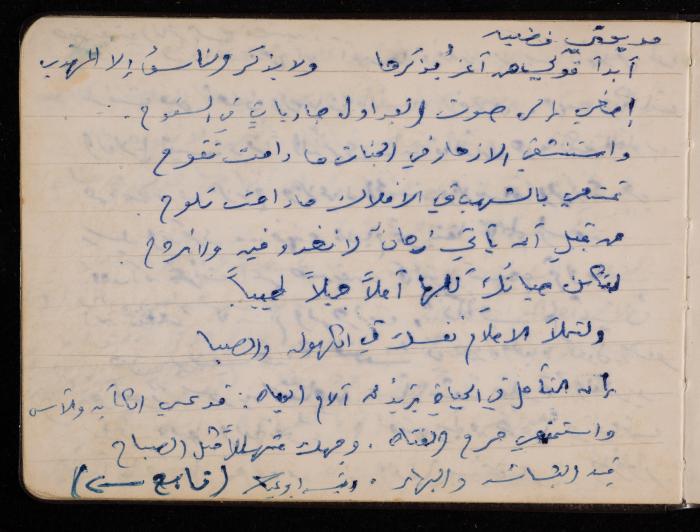 صديقتي
أبدأ قولي من أعز يُذكرها ولا يذكر الناس إلا المهذب
إصغي إلى صوت الجداول جاريات في السفوح
واستنشقي الازهار في الجنات ما دامت تفوح
تمتعي بالشهب في الافلاك ما دامت تلوح
من قبل أن يأتي زمان لا نغدو فيه ولا نروح
لتكن حياتك كلها أملاً جميلاً طيباً
ولتملأ الاحلام نفسك في الكهولة والصبا
إن التأمل في الحياة يزيد من آلام الحياة فدعي الكآبة والأسى
واستنتجي مرح الفتاة . وجهك متهللاً مثل الصباح
فيه البشاشة والبهاء .